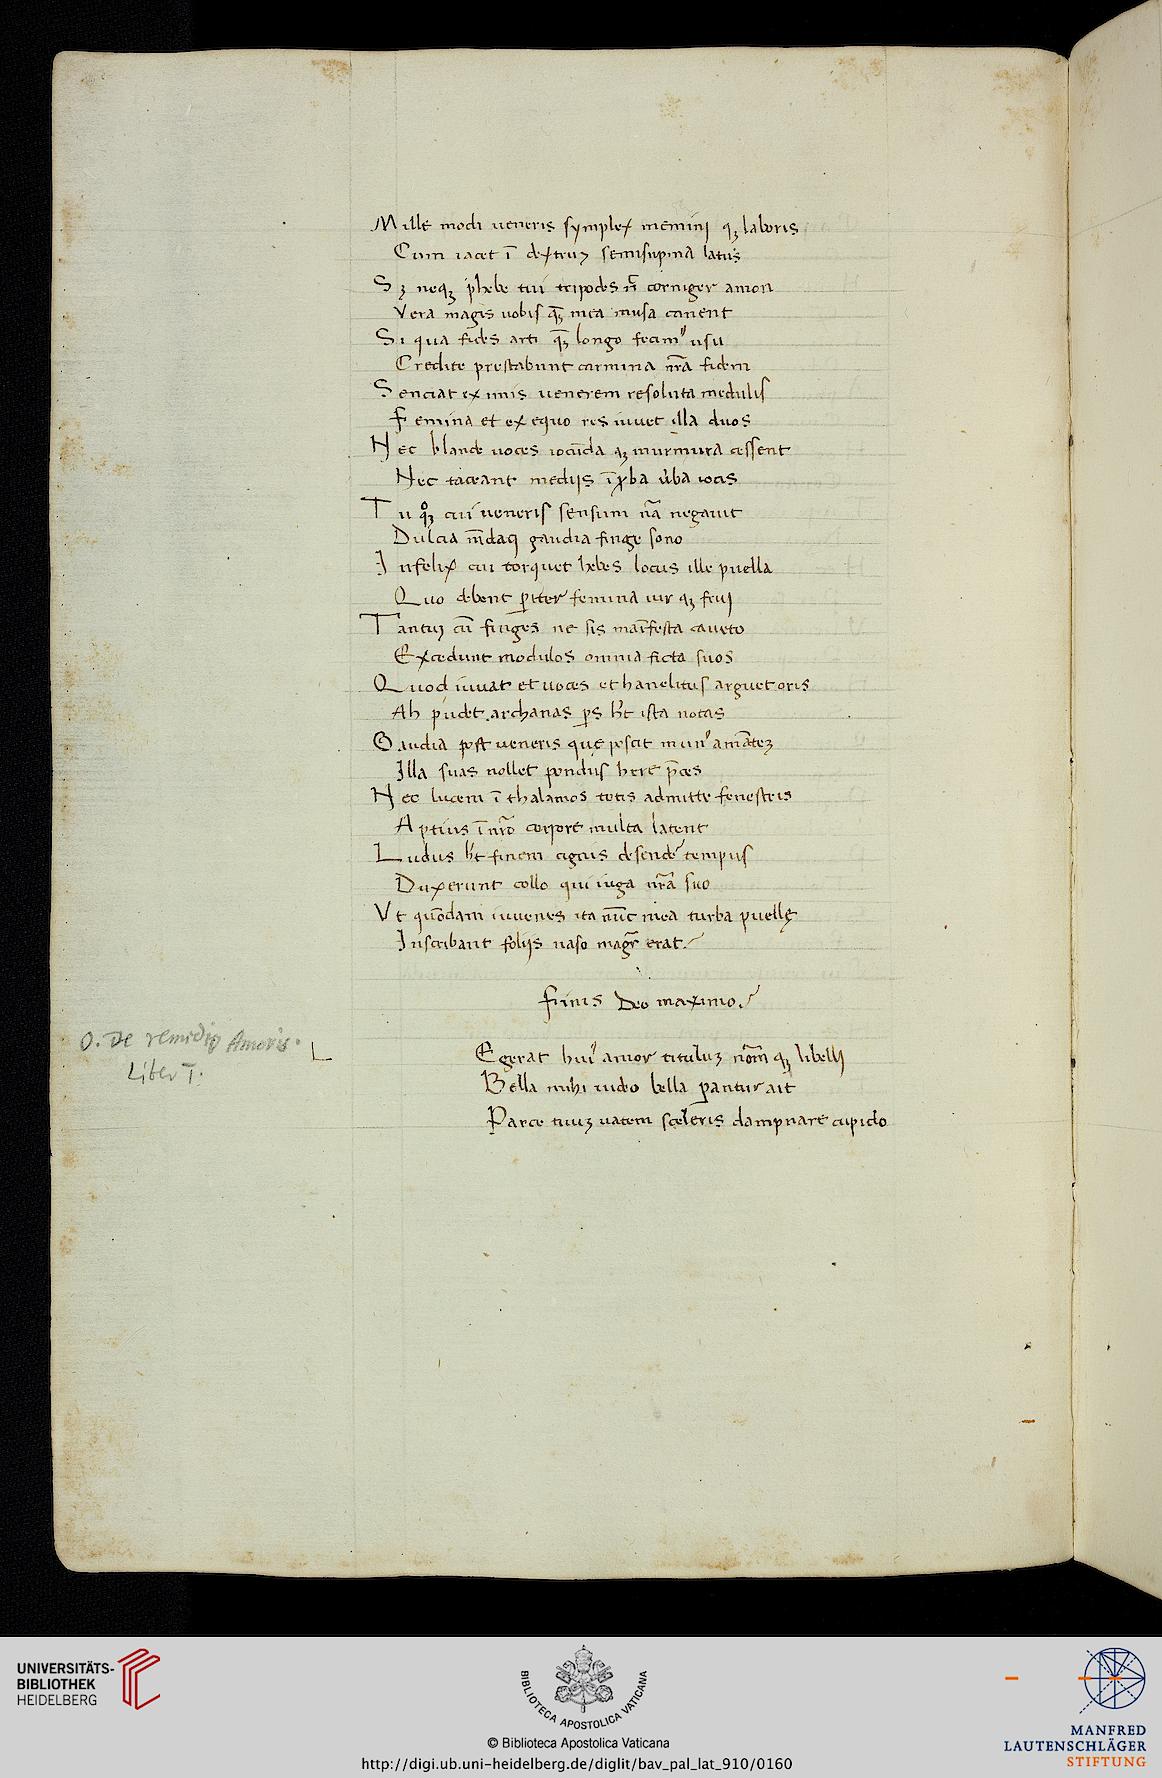 Mille modi veneris symplex meminj qꝫ laboris
Cum iacet ī dextruꝫ semisupina latus
Sꝫ neqꝫ phebe tui tripodes n̄ corniger amon
Vera magis uobis qꝫ̄ mea musa canent
Si qua fides arti qꝫ̄ longo fecimꝰ usu
Credite prestabunt carmina nr̄a fidem
Senciat ex imis uenerem resoluta medulis
Femina et ex equo res iuuet illa duos
Nec blande uoces iocūda qꝫ murmura cessent
Nec taceant medijs īproba ūba iocis
Tu qꝫͦ cui ueneris sensum nāa negauit
Dulcia mēdaci gaudia finge sono
Infelix cui torquet hebes locus ille puella
Quo debent ꝑiter femina uir qꝫ frui
Tantuꝫ cū finges ne sis maīfesta caueto
Excedunt modulos omnia ficta suos
Quod iuuat et uoces et hanelitus arguet oris
Ah pudet archanas ꝑs ht̄ ista notas
Gaudia post ueneris que poscit munꝰ amāteꝫ
Illa suas nollet pondus here p̄ces
Nec lucem ī thalamos totis admitte fenestris
Aptius ī nr̄o corpore multa latent
Ludus ht̄ finem cignis desender̄ tempus
Duxerunt collo qui iuga nr̄a suo
Vt quōdam iuuenes ita nūc mea turba puellę
Inscribant folijs naso magr̄ erat
Finis Deo maximo
O. De remedijs Amoris.
Liber I.
Egerat huiꝰ amor tituluꝫ nōm qꝫ libellj
Bella mihi uideo bella ꝑantur ait
Parce tuuꝫ uatem sceleris dampnare cupido
UNIVERSITÄTS-
BIBLIOTHEK
HEIDELBERG
BIBLIOTECA APOSTOLICA VATICANA
© Biblioteca Apostolica Vaticana
http://digi.ub.uni-heidelberg.de/diglit/bav_pal_lat_910/0160
MANFRED
LAUTENSCHLÄGER
STIFTUNG